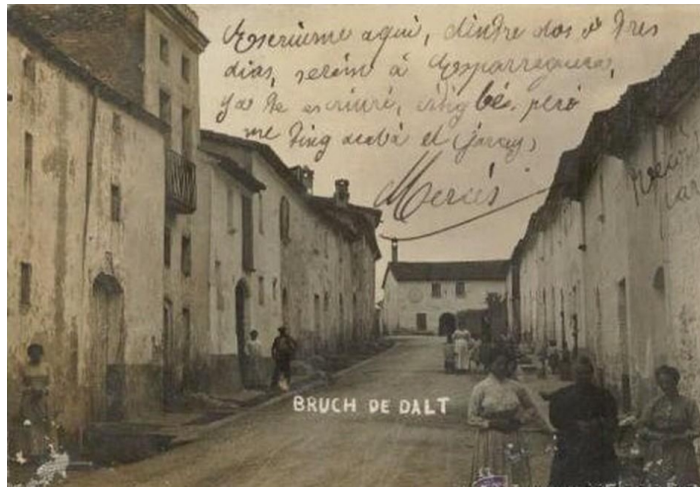 Escriume aquí, dintre dos ó tres
dias, serém á Esparraguera,
ya te escriuré, estig bé, però
me ting acabá el
Mercés
BRUCH DE DALT